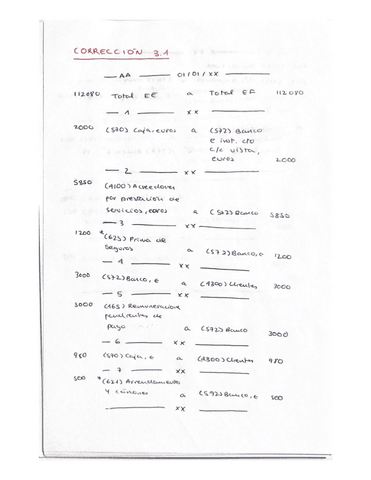 CORRECCIÓN 3.1
AA 01/01/XX
112080 Total EE a Total EF 112080
1 XX
2000 (570) Caja, euros a (572) Banco
e inst. c/c
c/c vista,
euros 2000
2 XX
5850 (4100) Acreedores
por prestación de
servicios, euros a (572) Banco 5850
3 XX
1200 *(625) Prima de
Seguros a (572) Banco, € 1200
4 XX
3000 (572) Banco, € a (4300) Clientes 3000
5 XX
3000 (465) Remuneraciones
pendientes de
pago a (572) Banco 3000
6 XX
980 (570) Caja, € a (4300) Clientes 980
7 XX
500 *(621) Arrendamientos
y cánones a (572) Banco, € 500
XX